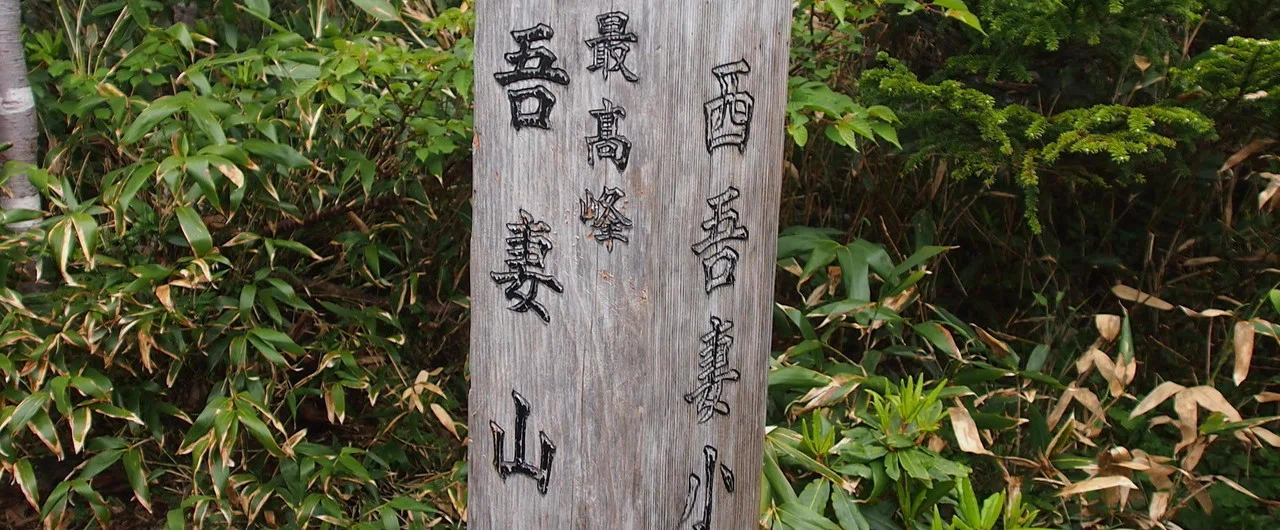 西吾妻小
最髙峰
吾妻山